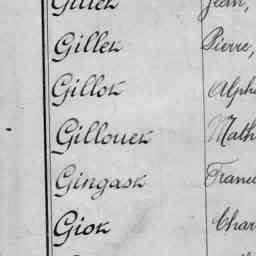 Gillet Jean,
Gillet Pierre,
Gillot Alph
Gillouet Math
Gingast Franc
Giot Char